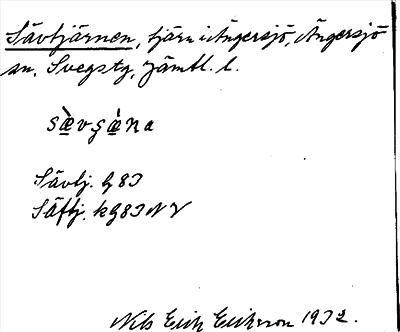 Sävtjärnen, tjärn i Ängersjö, Ängersjö
sn, Svegs tg, Jämtl. l.
sæ̀vʂæ̀ɳa
Sävtj. G 83
Säftj. kG 83 NV
Nils Erik Eriksson 1932.